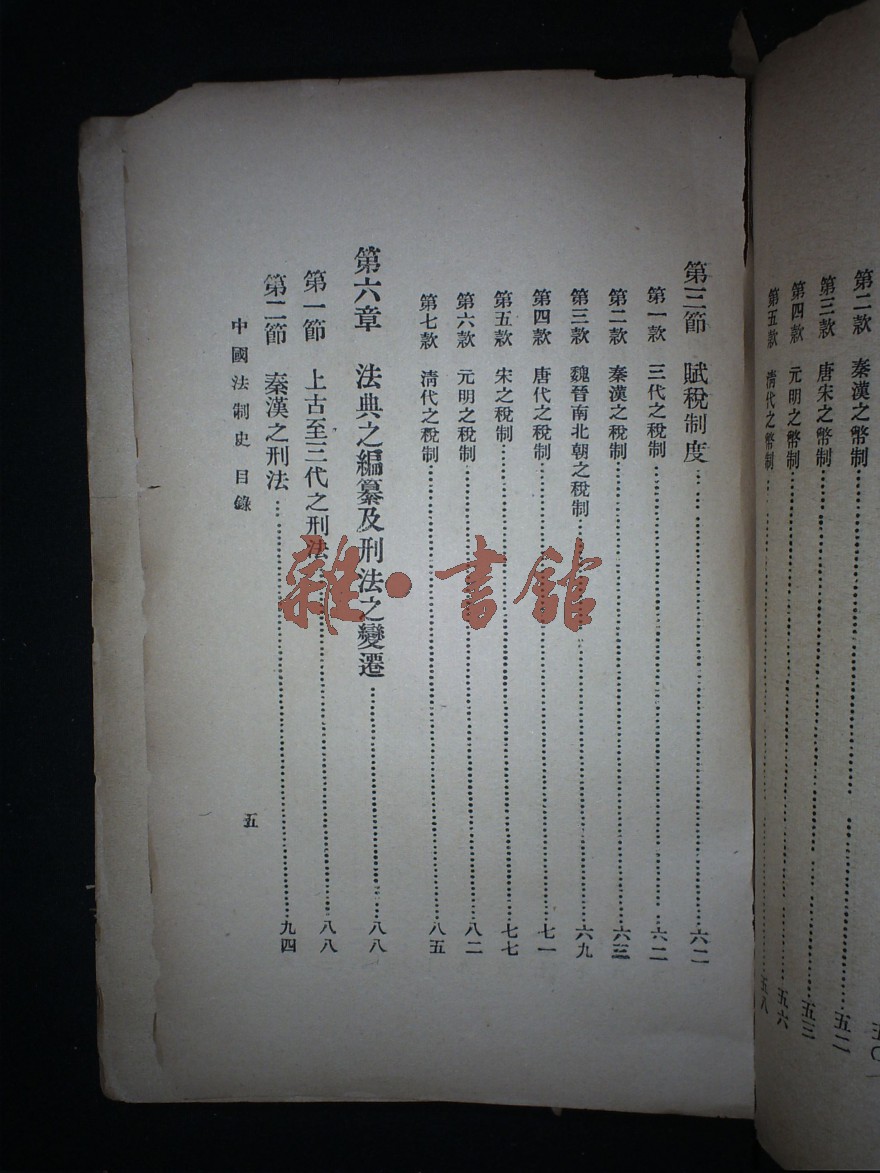 第二款　秦漢之幣制……五二
第三款　唐宋之幣制……五三
第四款　元明之幣制……五六
第五款　清代之幣制……五八
第三節　賦稅制度……六二
第一款　三代之稅制……六二
第二款　秦漢之稅制……六三
第三款　魏晉南北朝之稅制……六九
第四款　唐代之稅制……七一
第五款　宋之稅制……七七
第六款　元明之稅制……八二
第七款　清代之稅制……八五
第六章　法典之編纂及刑法之變遷……八八
第一節　上古至三代之刑法……八八
第二節　秦漢之刑法……九四
中國法制史　目錄　五
雜·書館